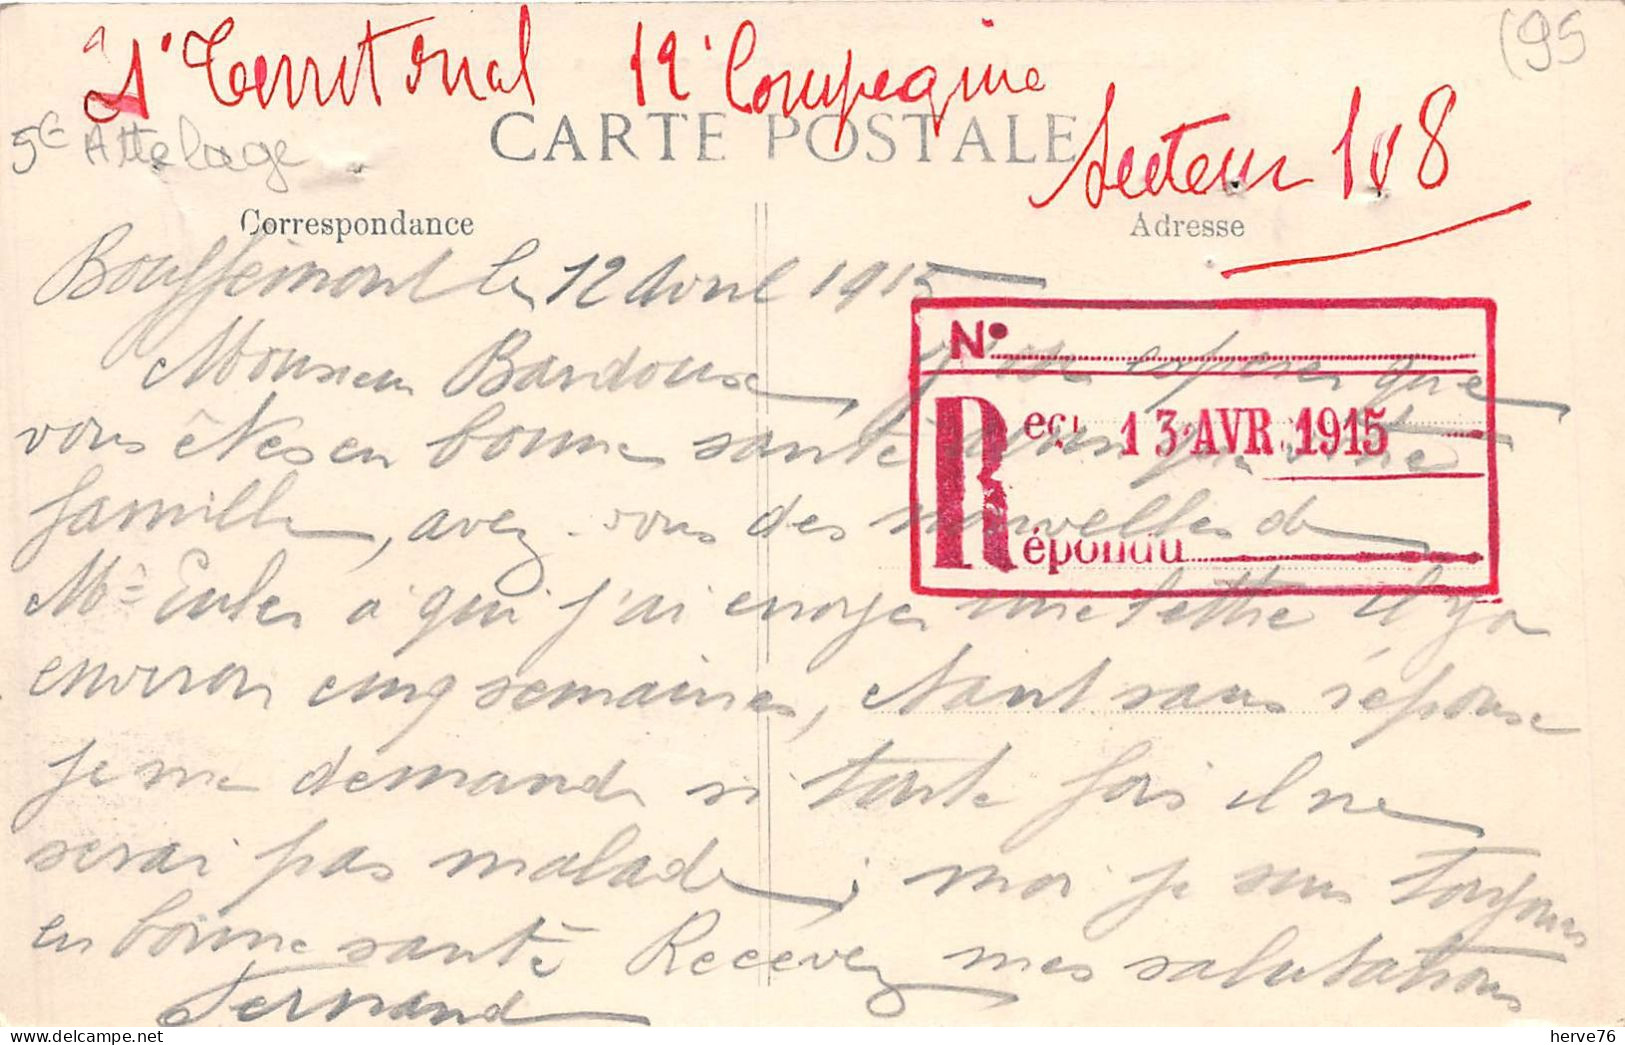 Territorial 12e Compagnie
Secteur 108
(95
5E Attelage
CARTE POSTALE
Correspondance
Adresse
Bouffémont le 12 Avril 1915
Monsieur Bardoux, j'ose esperer que
vous êtes en bonne santé ainsi que votre
famille, avez-vous des nouvelles de
Mr Euler à qui j'ai envoyer une lettre il y a
environ cinq semaines, étant sans réponse
je me demande si toute fois il ne
serai pas malade, moi je suis toujours
en bonne santé Recevez mes salutations
Fernand
N°
Reçu 13 AVR 1915
Répondu
herve76